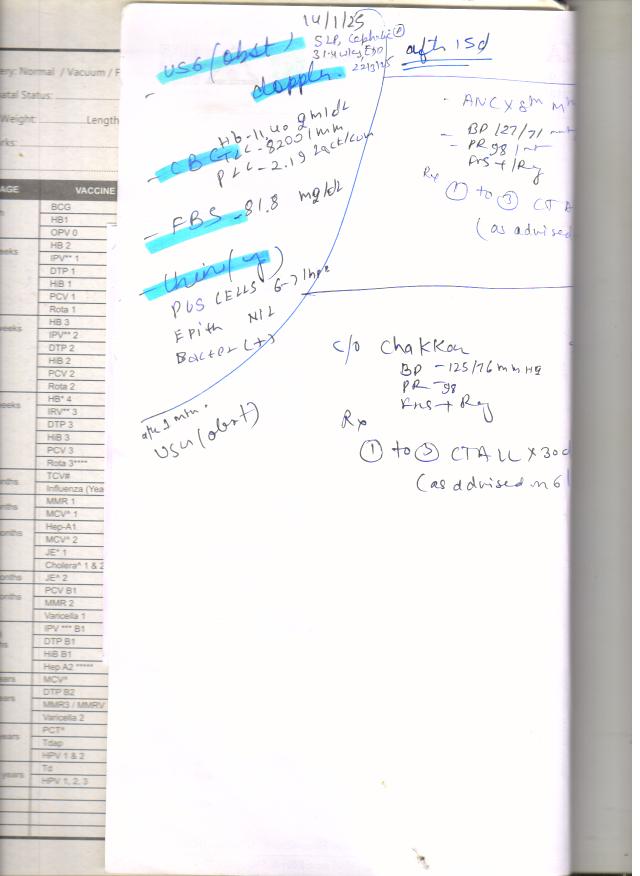 14/1/25
- USG (obst)
doppler.
SLP, Cephalic
- CBC
Hb-11.40 gm/dl
TLC-8200/mm
PLC-2.19 lact/cum
- FBS -81.8 mg/dl
- Urine (y)
PUS CELLS 6-7/hpf
Epith NIL
Bacter (+)
USG (obst)
after 15d
- ANC X 8th
- BP 127/71
- PR 98
Rx
① to ③ CT
(as advised
c/o chakkar
BP -125/76 mm Hg
PR -98
FHS + Reg
Rx
① to ⑤ CT ALL X 30d
(as advised
ery: Normal / Vacuum / F
atal Status:
Weight: Length
rks:
AGE VACCINE
BCG
HB1
OPV 0
eeks HB 2
IPV** 1
DTP 1
HiB 1
PCV 1
Rota 1
weeks HB 3
IPV** 2
DTP 2
HiB 2
PCV 2
Rota 2
weeks HB* 4
IRV** 3
DTP 3
HiB 3
PCV 3
Rota 3****
nths TCV#
Influenza (Yea
onths MMR 1
MCV^ 1
onths Hep-A1
MCV^ 2
JE^ 1
Cholera^ 1 & 2
onths JE^ 2
onths PCV B1
MMR 2
Varicella 1
IPV *** B1
hs DTP B1
HiB B1
Hep A2 *****
ars MCV^
ars DTP B2
MMR3 / MMRV
Varicella 2
ears PCT^
Tdap
HPV 1 & 2
years Td
HPV 1, 2, 3